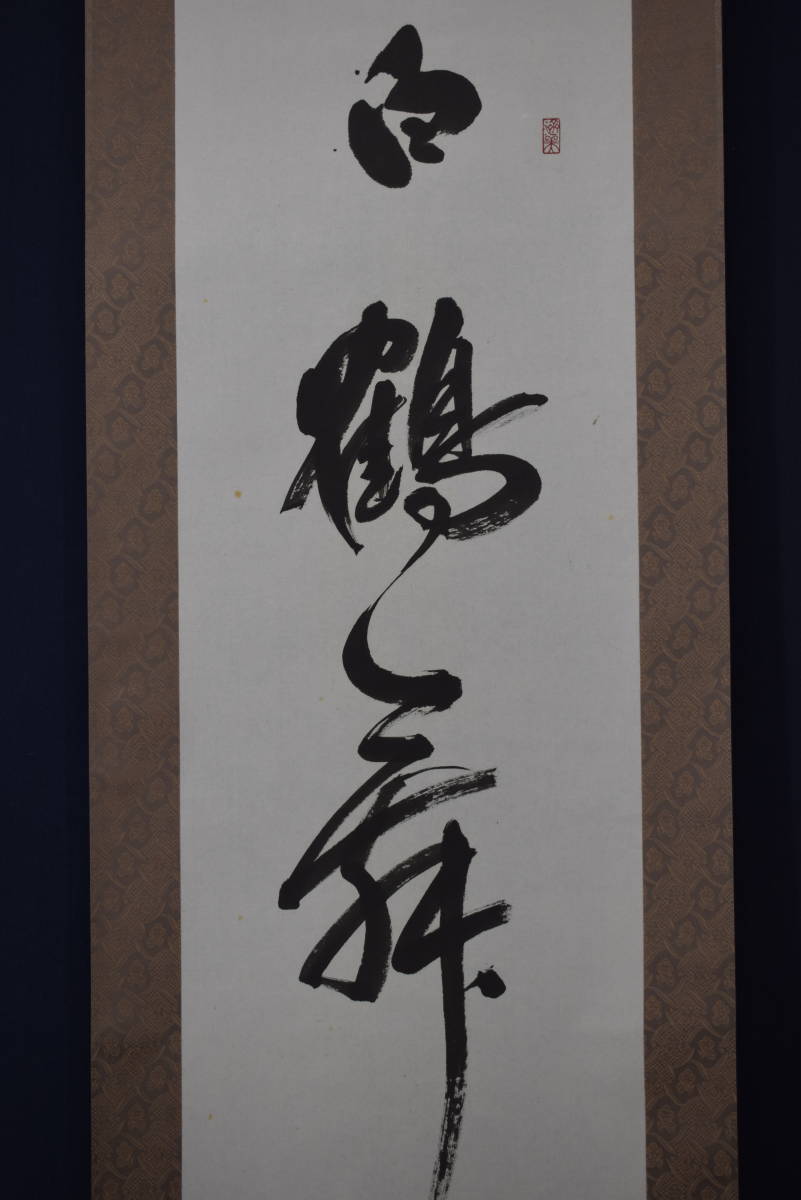 白鶴舞